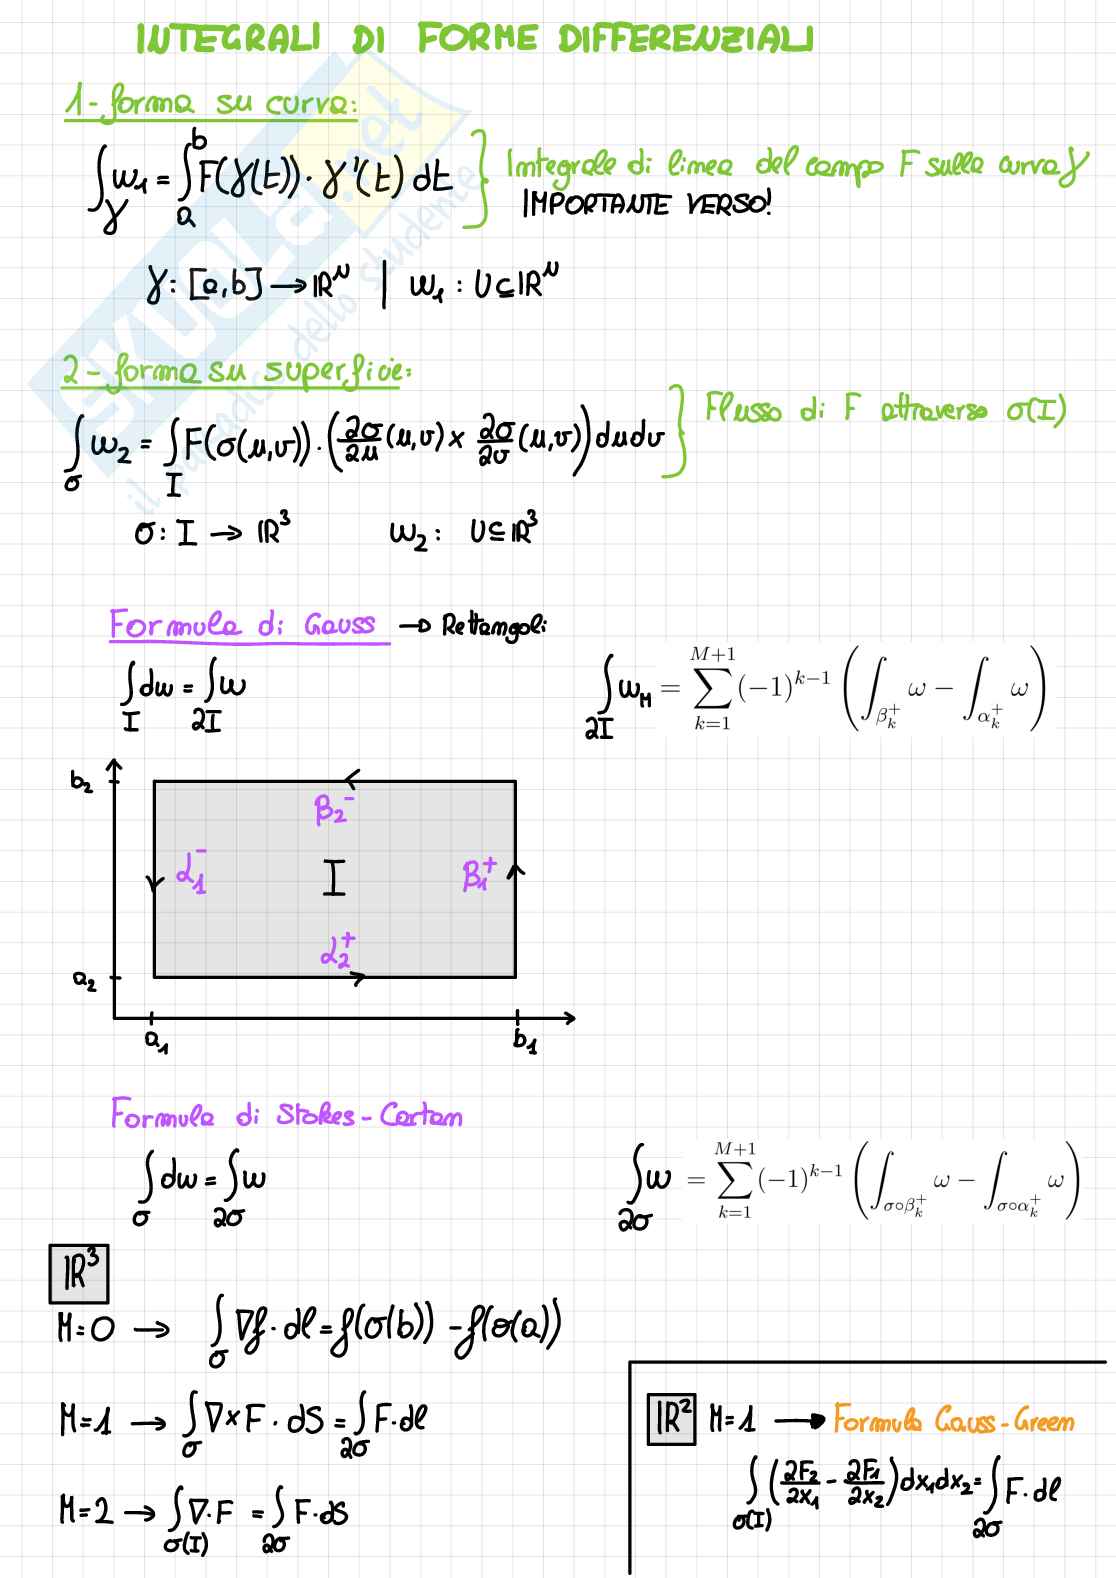 INTEGRALI DI FORME DIFFERENZIALI
1-forma su curva:
∫_γ ω₁ = ∫_a^b F(γ(t)) · γ'(t) dt } Integrale di linea del campo F sulla curva γ
IMPORTANTE VERSO!
γ: [a,b] → ℝᴺ | ω₁ : U⊆ℝᴺ
2-forma su superficie:
∫_σ ω₂ = ∫_I F(σ(u,v)) · (∂σ/∂u (u,v) × ∂σ/∂v (u,v)) du dv } Flusso di F attraverso σ(I)
σ: I → ℝ³ ω₂: U⊆ℝ³
Formula di Gauss → Rettangoli
∫_I dω = ∫_∂I ω
∫_∂I ω_M = ∑_{k=1}^{M+1} (-1)^{k-1} ( ∫_{β_k^+} ω − ∫_{α_k^+} ω )
b₂
β₂⁻
α₁⁻
I
β₁⁺
α₂⁺
a₂
a₁
b₁
Formula di Stokes-Cartan
∫_σ dω = ∫_∂σ ω
∫_∂σ ω = ∑_{k=1}^{M+1} (-1)^{k-1} ( ∫_{σ∘β_k^+} ω − ∫_{σ∘α_k^+} ω )
ℝ³
M=0 → ∫_σ ∇f · dl = f(σ(b)) - f(σ(a))
M=1 → ∫_σ ∇×F · dS = ∫_∂σ F·dl
M=2 → ∫_σ(I) ∇·F = ∫_∂σ F·dS
ℝ² M=1 → Formula Gauss-Green
∫_σ(I) (∂F₂/∂x₁ - ∂F₁/∂x₂) dx₁dx₂ = ∫_∂σ F·dl
SKUOLA.net
il paradiso dello studente